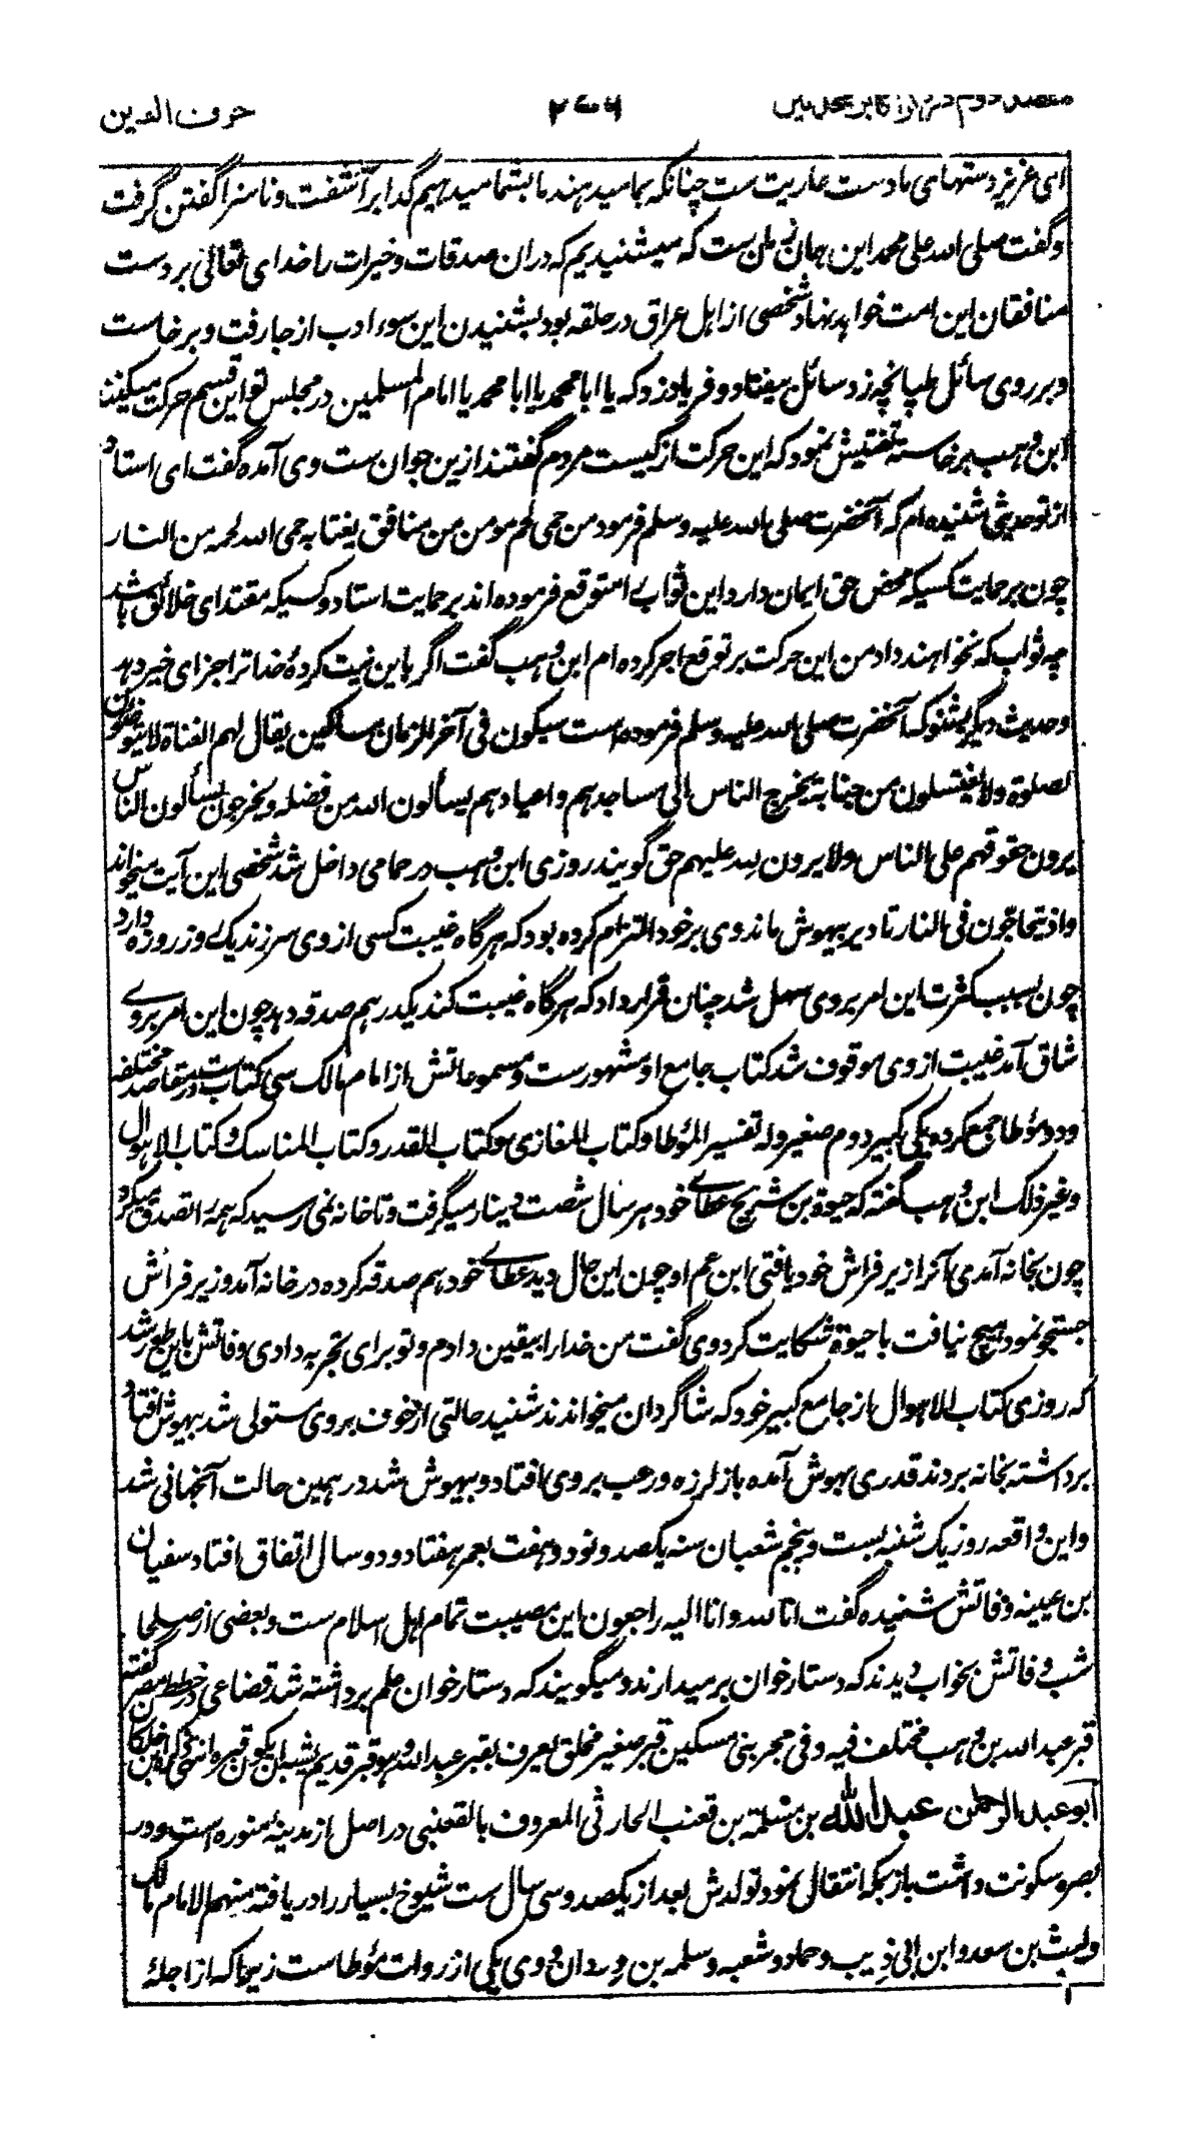 حرف العین
۲۷۶
مقصد دوم در ذکر اکابر محدثین
ای عزیز دستهای ما دست عاریت ست چنانکه بما میدهند ما بشما میدهیم گدا برآشفت و ناسزا گفتن گرفت
و گفت صلی الله علی محمد این همان زمان ست که میشنیدیم که دران صدقات و خیرات را خدای تعالی بر دست
منافقان این امت خواهد نهاد شخصی از اهل عراق در حلقه بود بشنیدن این سوء ادب از جا رفت و برخاست
و بر روی سائل طپانچه زد سائل بیفتاد و فریاد زد که یا ابا محمد یا ابا محمد یا امام المسلمین در مجلس تو این قسم حرکت میکنند
ابن وهب برخاسته تفتیش نمود که این حرکت از کیست مردم گفتند ازین جوان ست وی آمده گفت ای استاد
از تو حدیثی شنیده ام که آنحضرت صلی الله علیه وسلم فرمود من حمی لحم مومن من منافق یغتابه حمی الله لحمه من النار
چون بر حمایت کسیکه محض حق ایمان دارد این ثواب را متوقع فرموده اند بر حمایت استاد و کسیکه مقتدای خلائق باشد
چه ثواب که نخواهند داد من این حرکت بر توقع اجر کرده ام ابن وهب گفت اگر باین نیت کردهٔ خدا ترا جزای خیر دهد
و حدیث دیگر بشنو که آنحضرت صلی الله علیه وسلم فرموده است سیکون فی آخر الزمان مساکین یقال لهم الغناة لا یتوضئون
لصلوة ولا یغتسلون من جنابة یخرج الناس الی مساجدهم واعیادهم یسألون الله من فضله ویخرجون یسألون الناس
یرون حقوقهم علی الناس ولا یرون لله علیهم حق گویند روزی ابن وهب در حمامی داخل شد شخصی این آیت میخواند
واذ یتحاجون فی النار تا دیر بیهوش ماند وی بر خود التزام کرده بود که هرگاه غیبت کسی از وی سر زند یک روز روزه دارد
چون بسبب کثرت این امر بر وی سهل شد چنان قرار داد که هرگاه غیبت کند یک درهم صدقه دهد چون این امر بر وی
شاق آمد غیبت از وی موقوف شد کتاب جامع او مشهورست و مسموعاتش از امام مالک سی کتاب ست در مقاصد مختلفه
و دو مؤطا جمع کرده یکی کبیر دوم صغیر و له تفسیر المؤطا و کتاب المغازی و کتاب القدر و کتاب المناسک و کتاب الاهوال
و غیر ذلک ابن وهب گفته که حیوة بن شریح عطای خود هر سال شصت دینار میگرفت و تا خانه نمی رسید که همه را تصدق میکرد
چون بخانه آمدی آنرا زیر فراش خود یافتی ابن عم او چون این حال دید عطای خود هم صدقه کرده در خانه آمد و زیر فراش
جستجو نمود هیچ نیافت با حیوة شکایت کرد وی گفت من خدا را بیقین دادم و تو برای تجربه دادی وفاتش باین طور شد
که روزی کتاب الاهوال از جامع کبیر خود که شاگردان میخواندند شنید حالتی از خوف بر وی مستولی شد بیهوش افتاد
برداشته بخانه بردند قدری بهوش آمده باز لرزه و رعب بر وی افتاد و بیهوش شد در همین حالت آنجهانی شد
و این واقعه روز یک شنبه بست و پنجم شعبان سنه یکصد و نود و هفت بعمر هفتاد و دو سال اتفاق افتاد سفیان
بن عیینه وفاتش شنیده گفت انا لله وانا الیه راجعون این مصیبت تمام اهل اسلام ست و بعضی از صلحا
شب وفاتش بخواب دیدند که دستار خوان بر میدارند و میگویند که دستار خوان علم برداشته شد قضاعی در خطط مصر گفته
قبر عبدالله بن وهب مختلف فیه و فی مجر بنی مسکین قبر صغیر مخلق یعرف بقبر عبدالله و هو قبر قدیم یشبه ان یکون قبره انتهی کذا
ابو عبد الرحمن عبد الله بن مسلمة بن قعنب الحارثی المعروف بالقعنبی در اصل از مدینهٔ منوره است و در
بصره سکونت داشت باز بمکه انتقال نمود تولدش بعد از یکصد و سی سال ست شیوخ بسیار را دریافته منهم الامام مالک
و لیث بن سعد و ابن ابی ذیب و حماد و شعبه و سلمه بن وردان و وی یکی از روات مؤطاست زیرا که از اجلهٔ